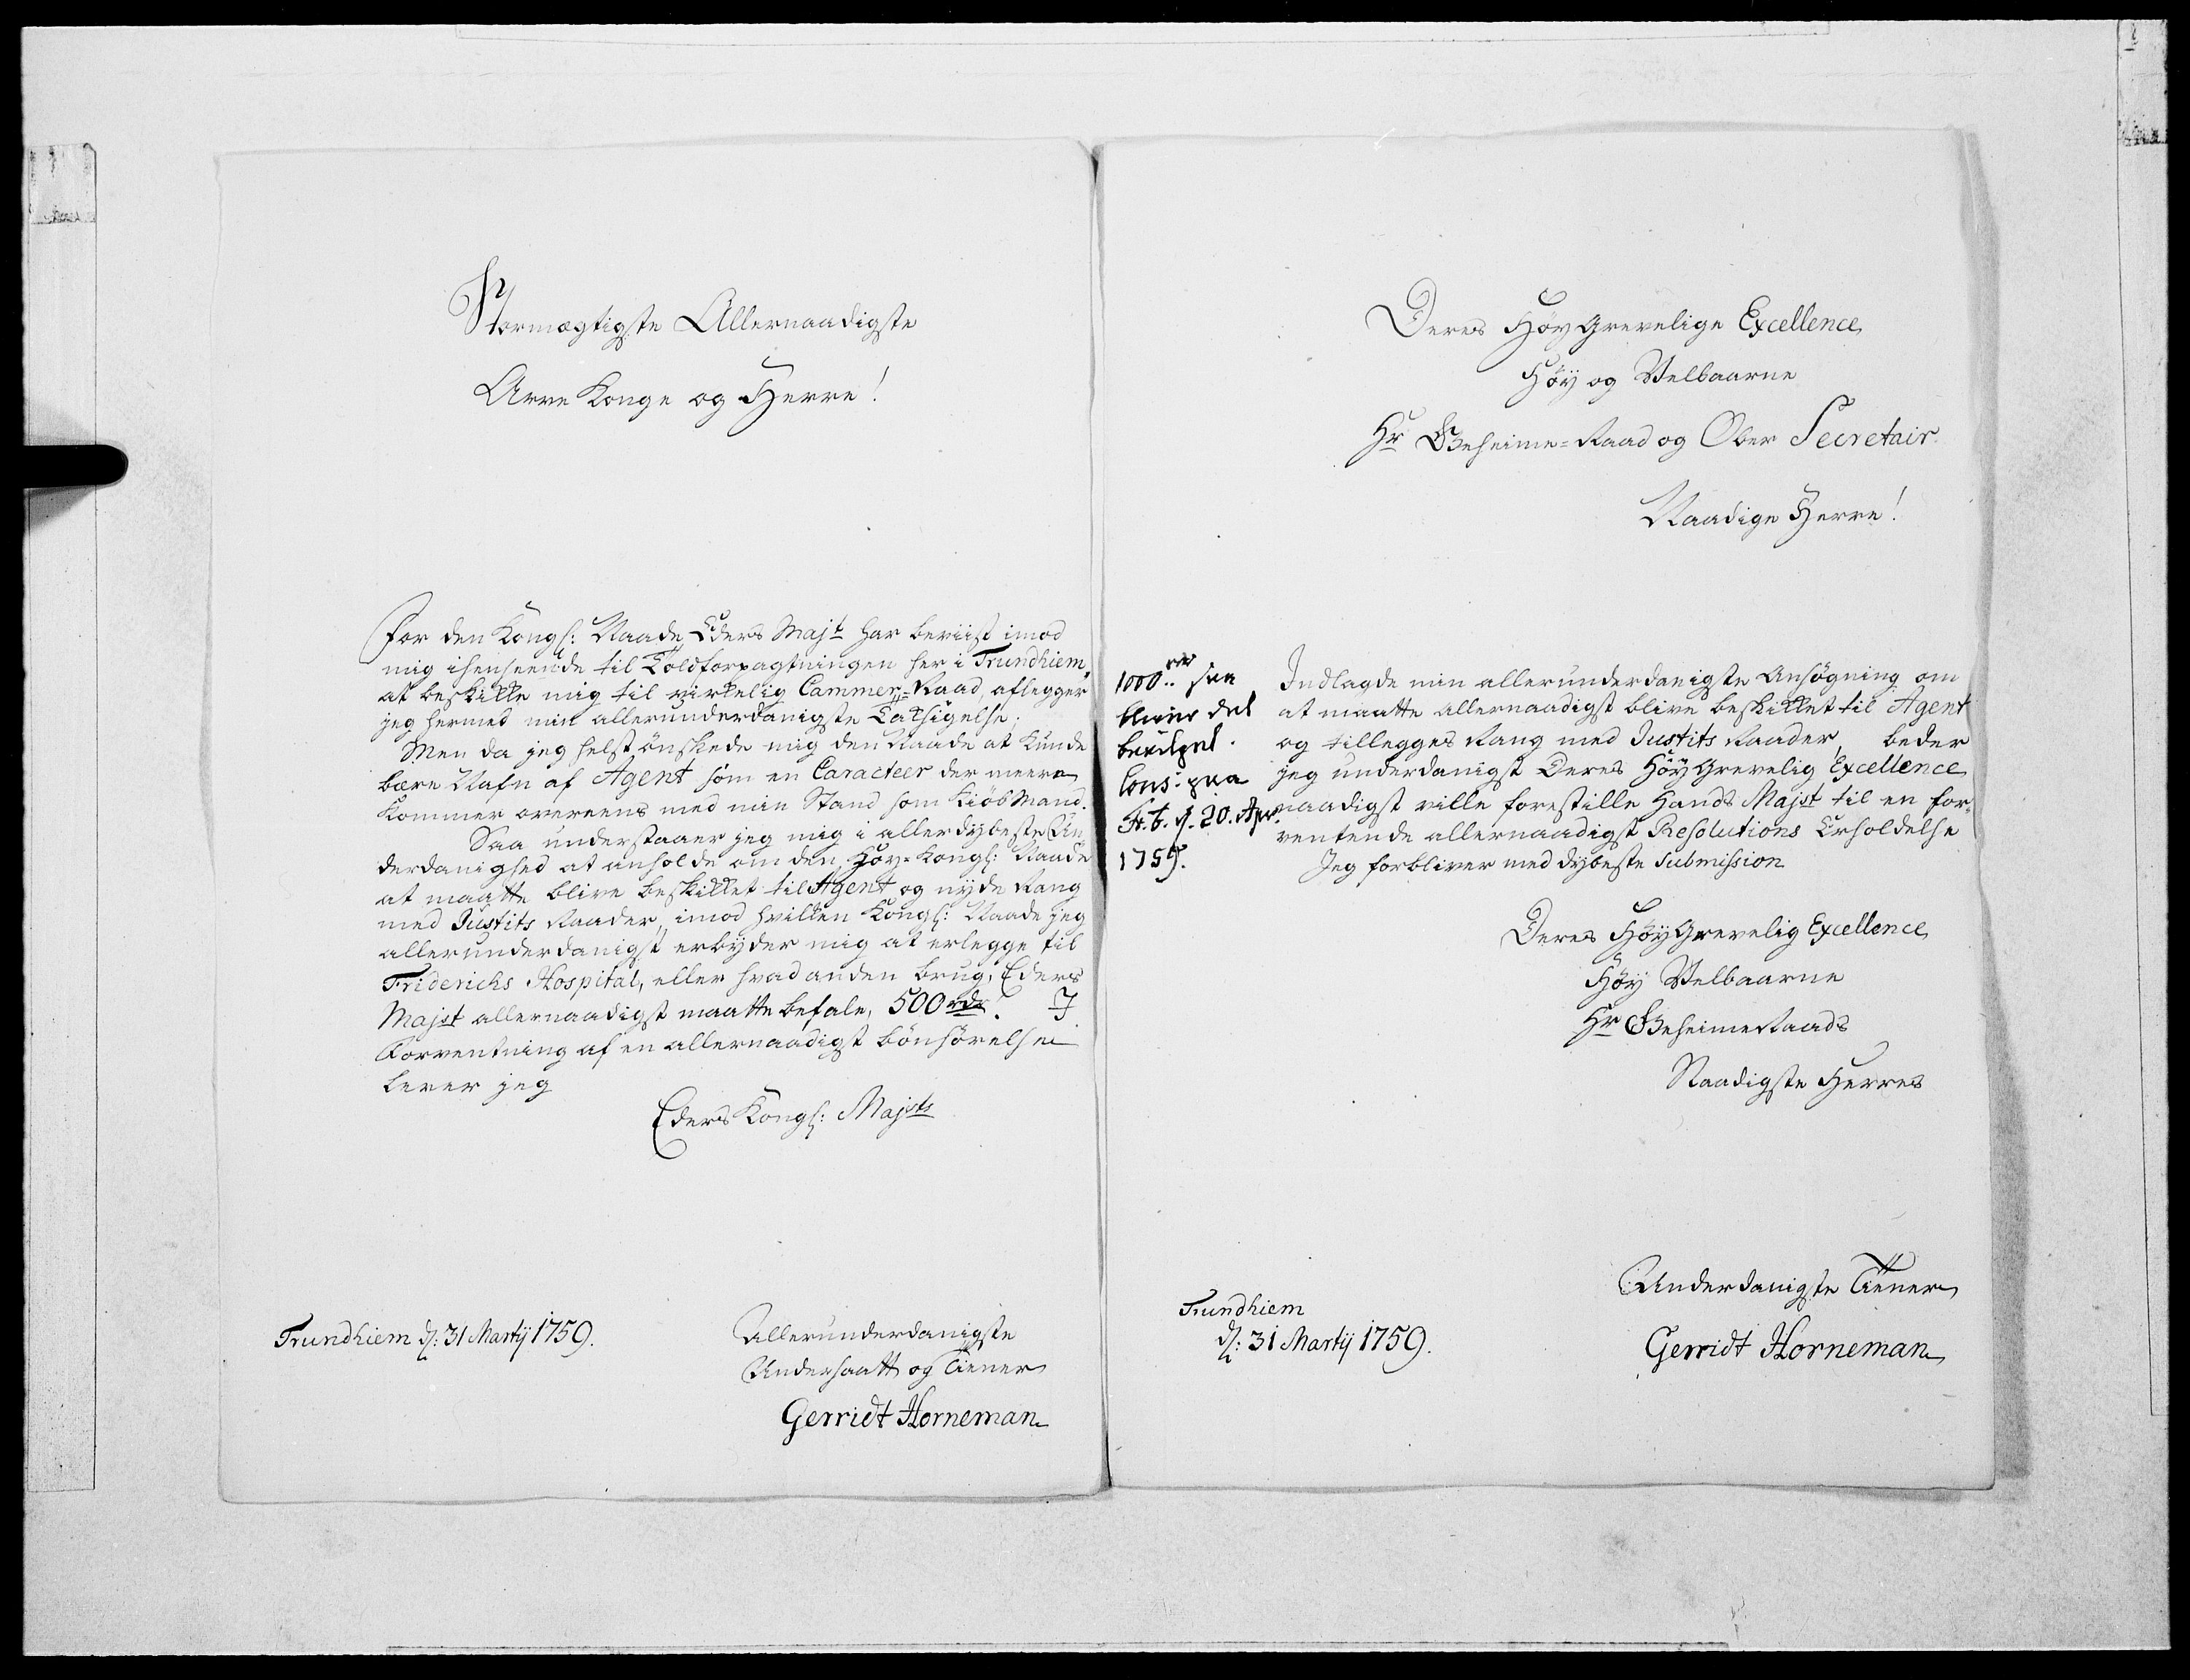 Stormægtigste Allernaadigste
Arve Konge og Herre!
For den Kongl: Naade Eders Majt har beviist imod
mig ihenseende til Toldforpagtningen her i Trundhiem,
at beskikke mig til virkelig Cammer-Raad, aflegger
jeg hermed min allerunderdanigste Taksigelse;
Men da jeg helst ønskede mig den Naade at kunde
bære Nafn af Agent som en Caracteer der meere
kommer overeens med min Stand som Kiøbmand.
Saa understaaer jeg mig i allerdybeste Un
derdanighed at anholde om den Høy-Kongl: Naade
at maatte blive beskikket til Agent og nyde Rang
med Justits Raader, imod hvilken Kongl: Naade jeg
allerunderdanigst erbyder mig at erlegge til
Friderichs Hospital, eller hvad anden brug, Eders
Majst allernaadigst maatte befale, 500 rdr. J
Forventning af en allernaadigst bønhørelse
lever jeg
Eders Kongl: Majsts
Trundhiem d: 31 Martij 1759.
Allerunderdanigste
Undersaatt og Tiener
Gerridt Horneman
Deres Høy Grevelige Excellence
Høy og Velbaarne
Hr Geheime-Raad og Ober Secretair
Naadige Herre!
1000 rdr saa
bliver det
bevilget.
Cons: paa
Fr. b. d. 20. Apr.
1759.
Indlagde min allerunderdanigste Ansøgning om
at maatte allernaadigst blive beskikket til Agent
og tillegges Rang med Justits Raader, beder
jeg underdanigst Deres Høy Grevelig Excellence
naadigst ville forestille Hands Majst til en for-
ventende allernaadigst Resolutions Erholdelse
Jeg forbliver med dybeste Submission
Deres Høy Grevelig Excellence
Høy Velbaarne
Hr Geheime Raads
Naadigste Herres
Trundhiem
d: 31 Martij 1759.
Underdanigste Tiener
Gerridt Horneman